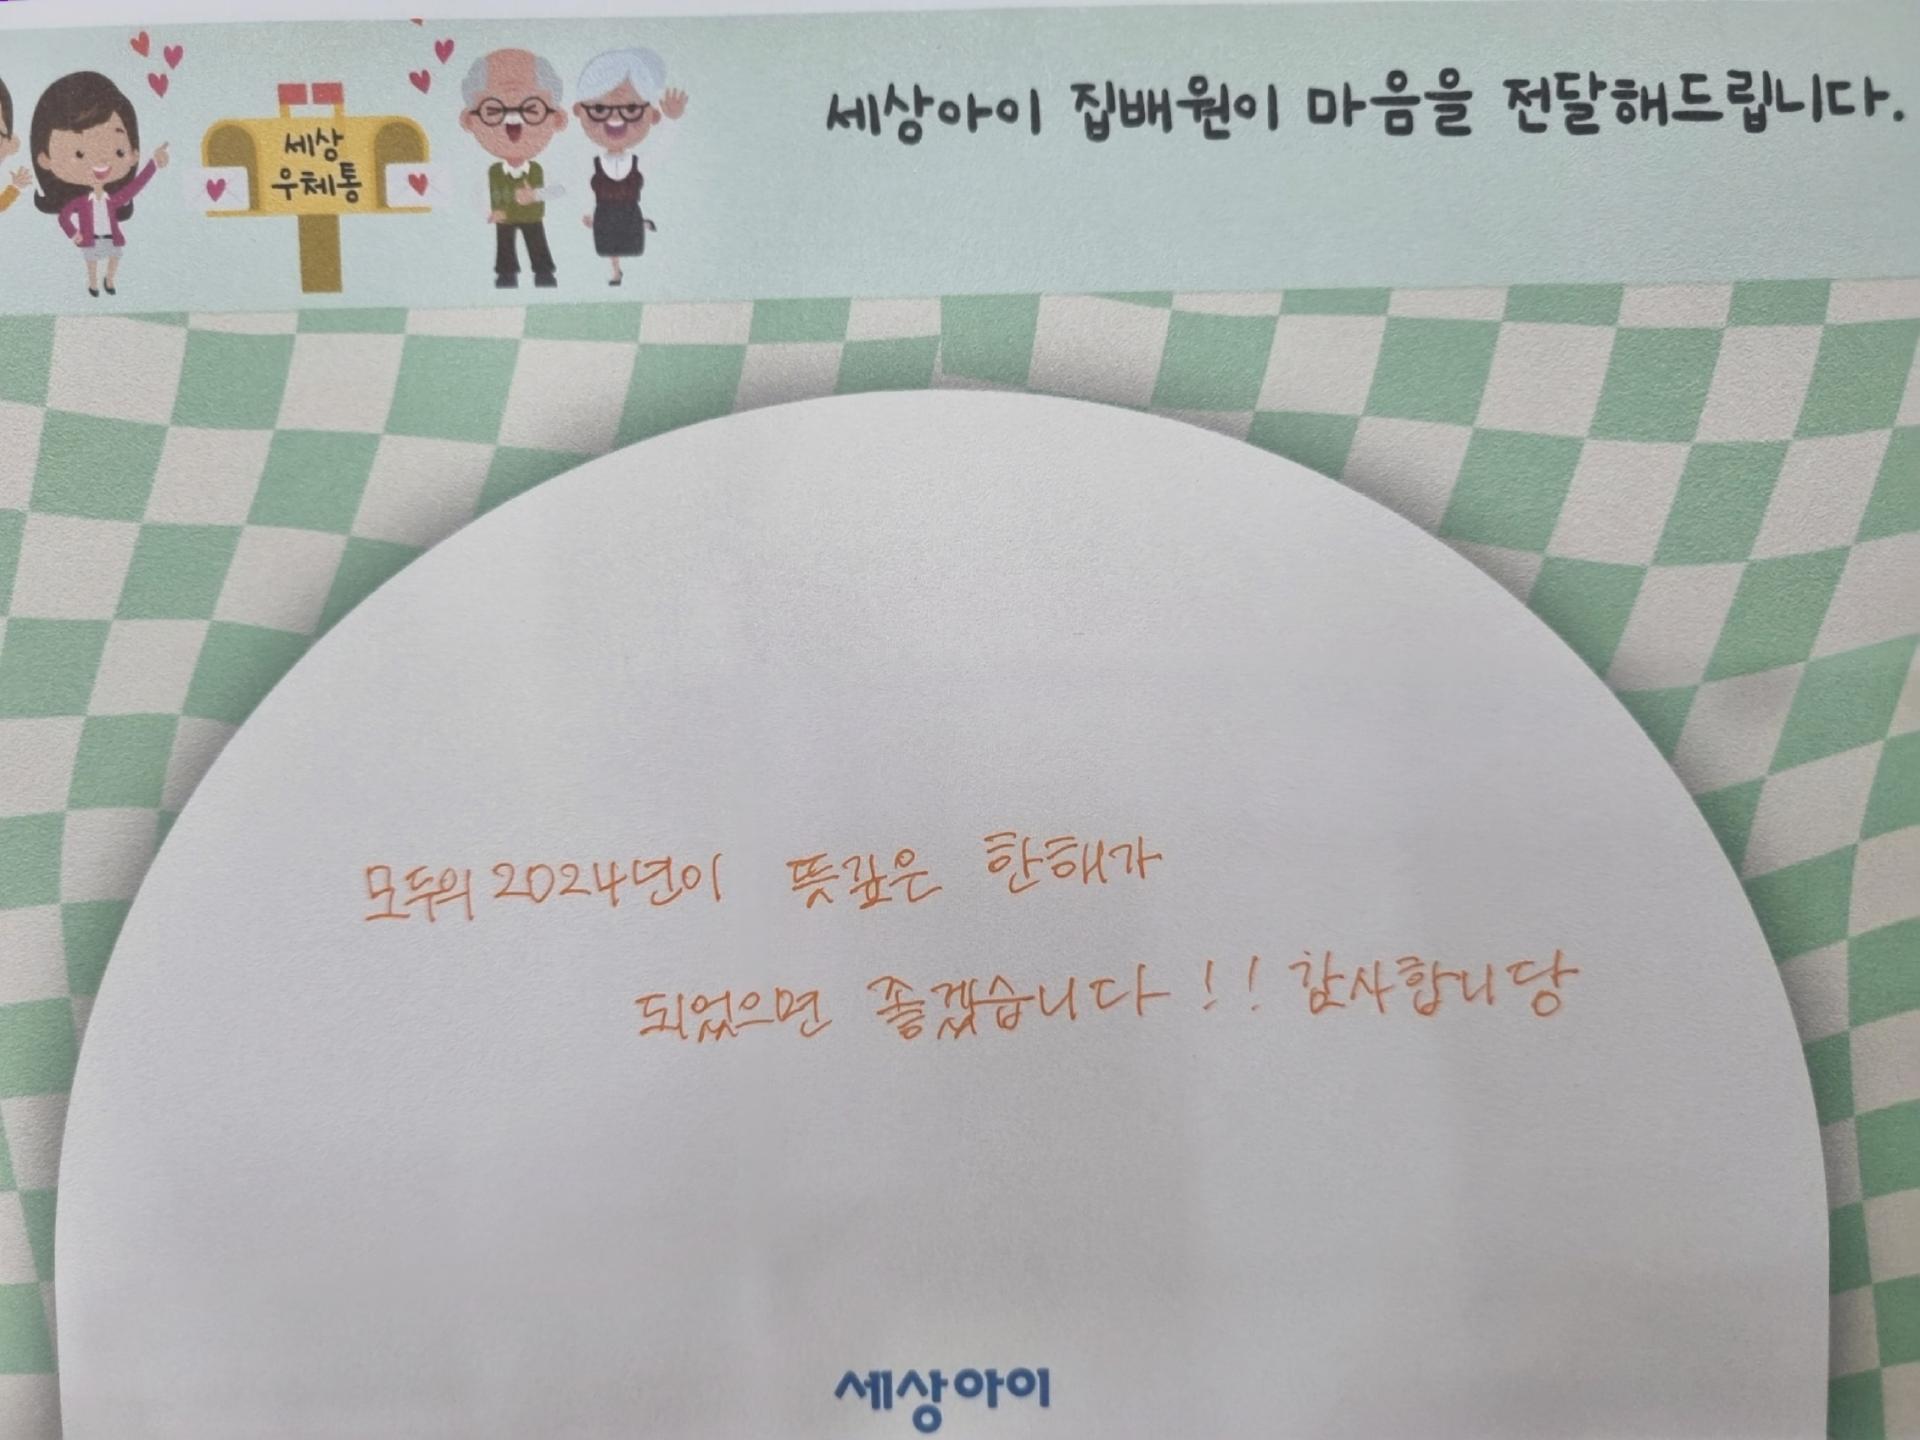 세상아이 집배원이 마음을 전달해드립니다.
세상
우체통
모두의 2024년이 뜻깊은 한해가
되었으면 좋겠습니다!! 감사합니당
세상아이